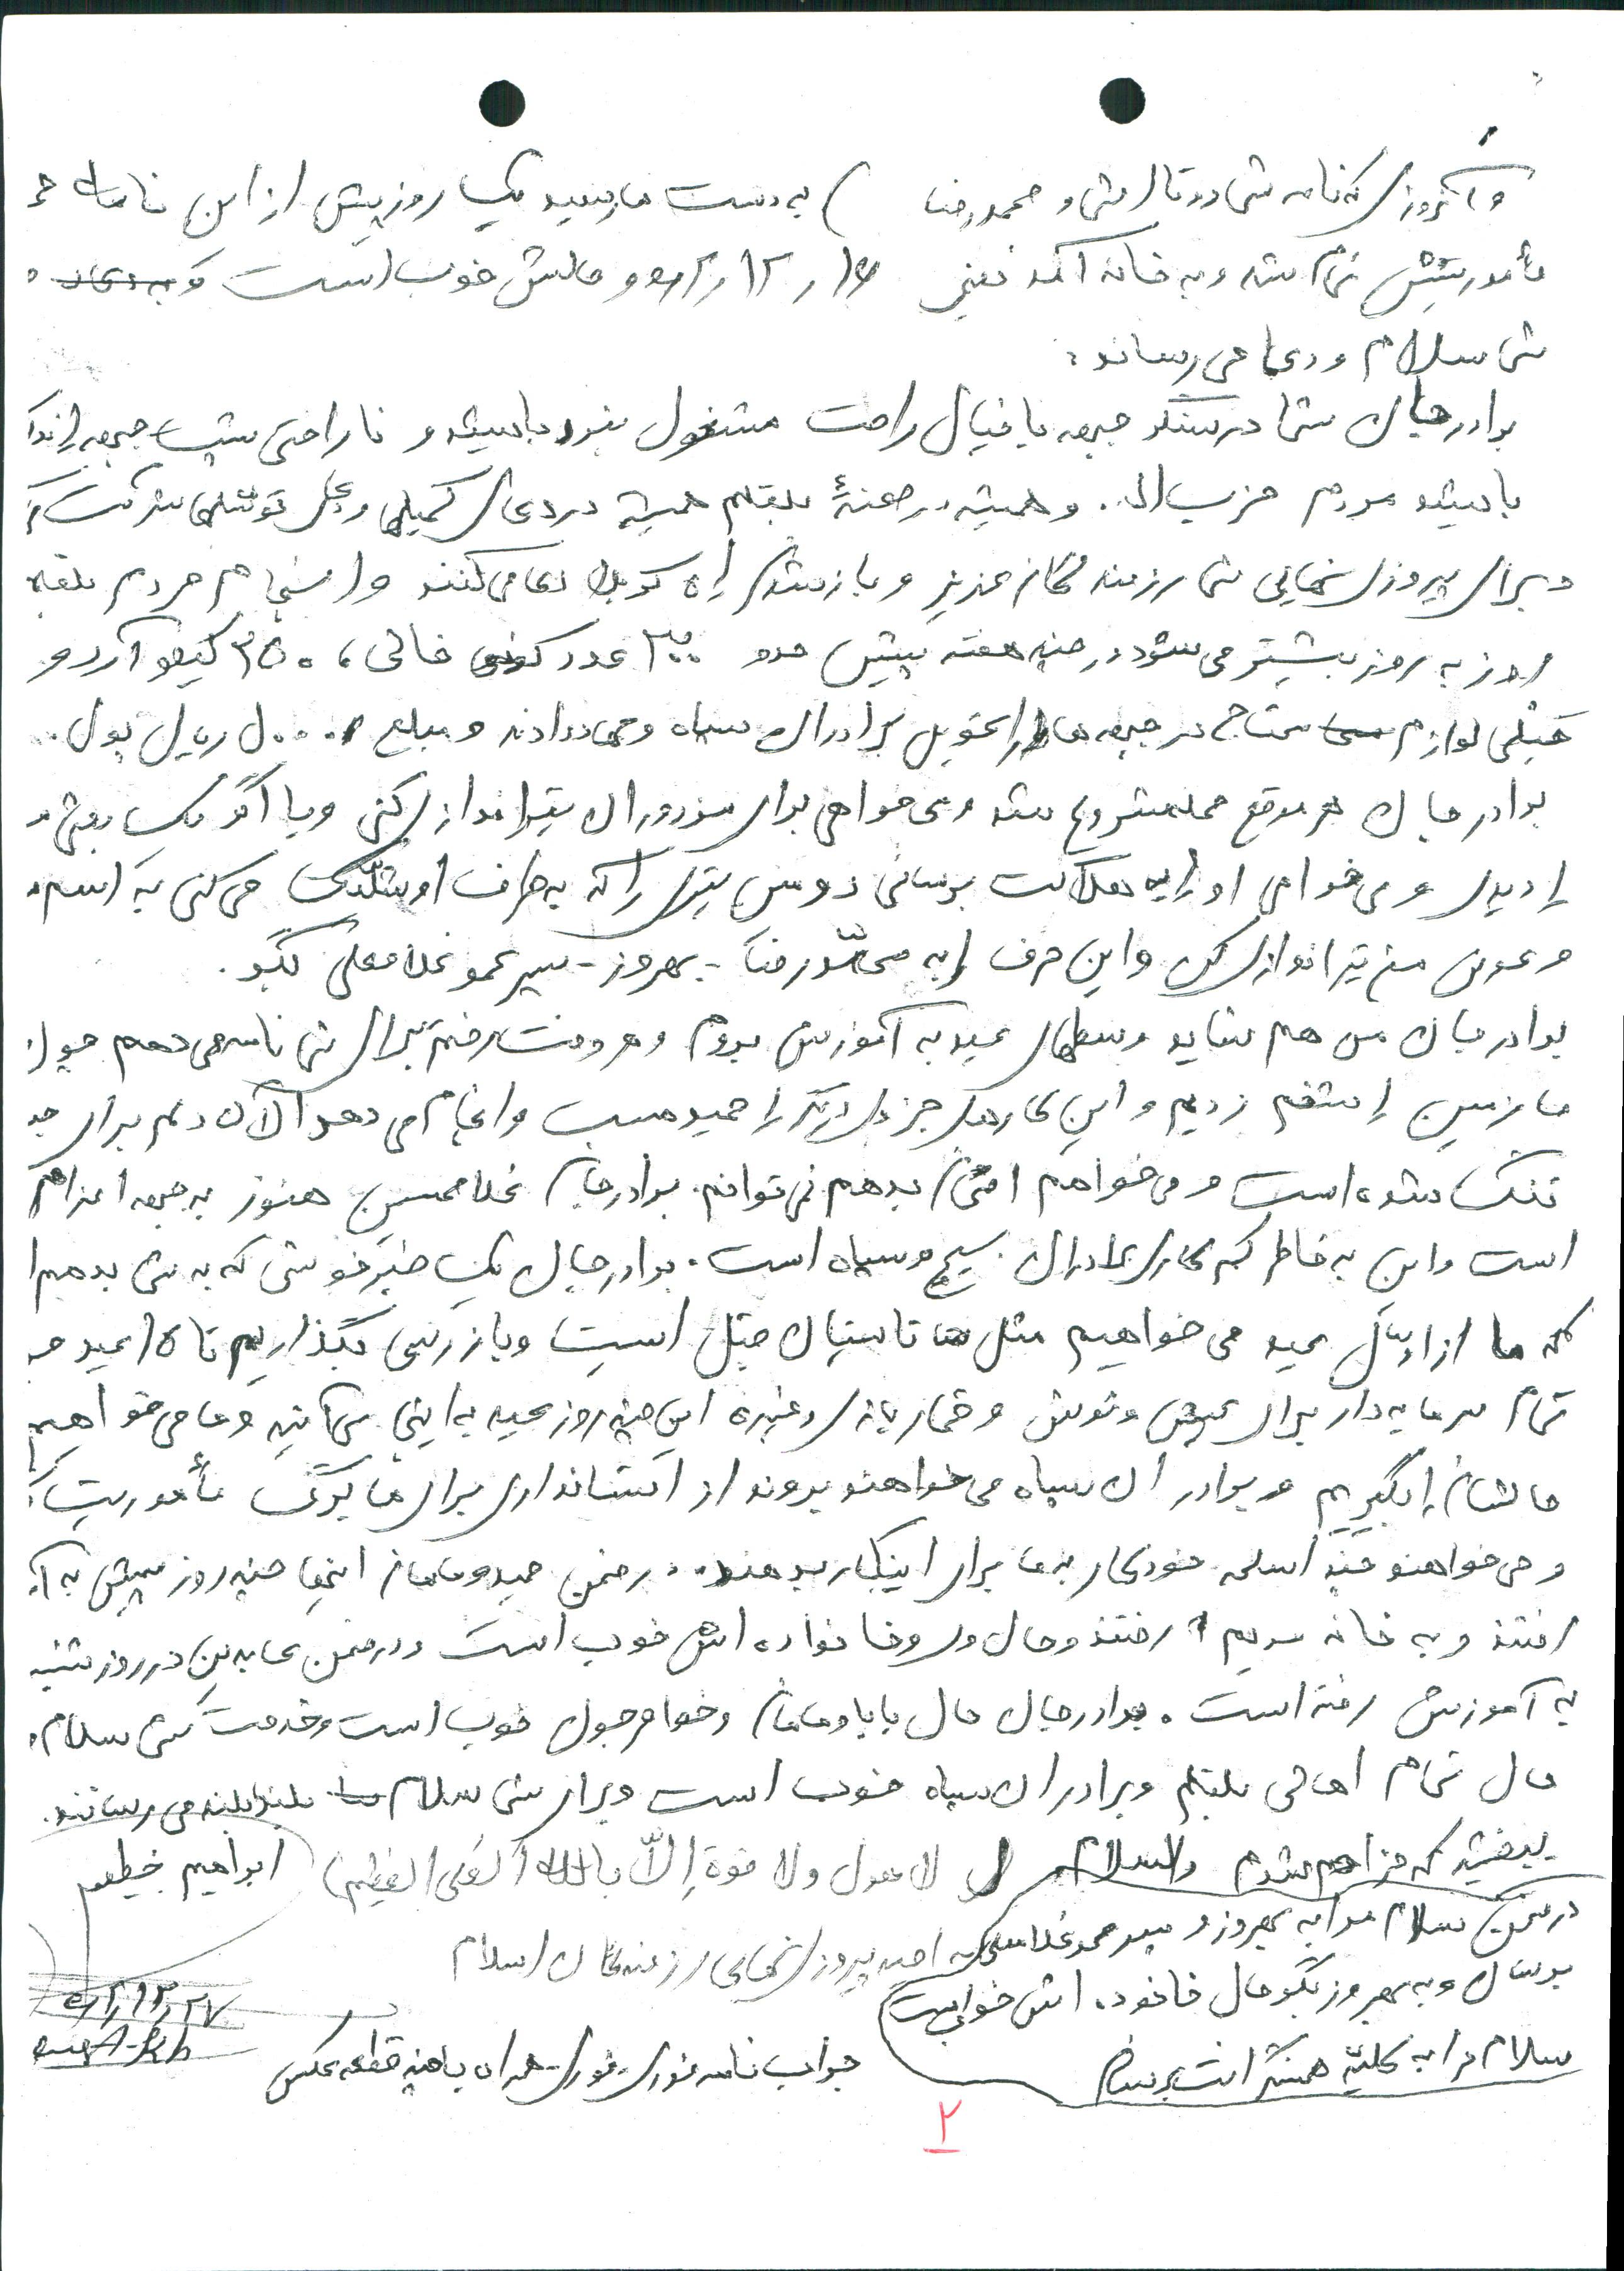 و آنروزی که نامه شما دو تا (شما و محمدرضا) به دست ما رسید یک روز پیش از این نامه
مأموریتش تمام شد و به خانه آمد یعنی ۱۶ ر ۱۲ ر و حالش خوب است و
شما سلام و دعا می رساند.
برادر جان شما در سنگر جبهه با خیال راحت مشغول نبرد باشید و ناراحتی پشت جبهه را نداشته
باشید مردم حزب الله. و همیشه در صحنهٔ بلقلم همیشه در دعای کمیلها و مجلس توسلها شرکت
و برای پیروزی نهایی شما رزمندهگان عزیز و باز شدن راه کربلا دعا می کنند و انسجام مردم
روز به روز بیشتر می شود در چند هفته پیش حدود ۳۰۰ عدد گونی خالی، ۳۵۰ کیلو آرد و
خیلی لوازم محتاج در جبهه ها را تحویل برادران سپاه و جهاد دادند و مبلغ ریال پول.
برادر جان هر موقع حمله شروع شد و می خواهی برای مزدوران تیراندازی کنی و یا اگر یک بعثی
را دیدی و می خواهی او را به هلاکت برسانی دومین تیری را که به طرف او شلّیک می کنی به اسم
و عوض من تیراندازی کن و این حرف را به محمّدرضا - بهروز - پسر عمو غلامعلی بگو.
برادر جان من هم شاید وسطهای عید به آموزش بروم و هر وقت رفتم برای شما نامه می دهم
ما زمین را شخم زدیم و این کارهای جزئی دیگر را حمید انجام می دهد الآن دلم برای جبهه
تنگ شده است و می خواهم امتحان بدهم نمی توانم. برادر جان غلامحسین هنوز به جبهه اعزام
است و این به خاطر کم کاری برادران بسیج و سپاه است. برادر جان یک خبر خوشی که به شما بدهم
که ما از اوّل عید می خواهیم مثل تابستان قبل ایست و بازرسی بگذاریم تا ۱۵ عید
تمام سرمایه دار برای عیش و نوش و قمار بازی و غیره این چند روز عید به اینجا می آیند و ما می خواهیم
حالشان را بگیریم و برادران سپاه می خواهند بروند از استانداری برای ما برگ مأموریت
و می خواهند چند اسلحه خودکار به ما برای اینکار بدهند. در ضمن حمید و مامان اینها چند روز پیش به
رفتند و به خانه رفتند و حال و خانواده اش خوب است و در ضمن عابدین در روز شنبه
به آموزش رفته است. برادر جان حال بابا و مامان و خواهر خوب است و خدمت شما سلام
حال تمام اهالی بلقلم و برادران سپاه خوب است و برای شما سلام بلند بلند می رسانند.
ببخشید که مزاحم شدم والسلام (لا حول ولا قوة إلّا بالله العلی العظیم) ابراهیم
در ضمن سلام مرا به بهروز و پسر عمو غلامعلی
به امید پیروزی نهایی رزمندهگان اسلام
برسان و به بهروز بگو حال خانواده اش خوب است
سلام مرا به کلیّه همسنگرانت برسان
۲۷ ر ۱۲ ر
جواب نامه فوری - فوری - همراه با چند قطعه عکس
۲